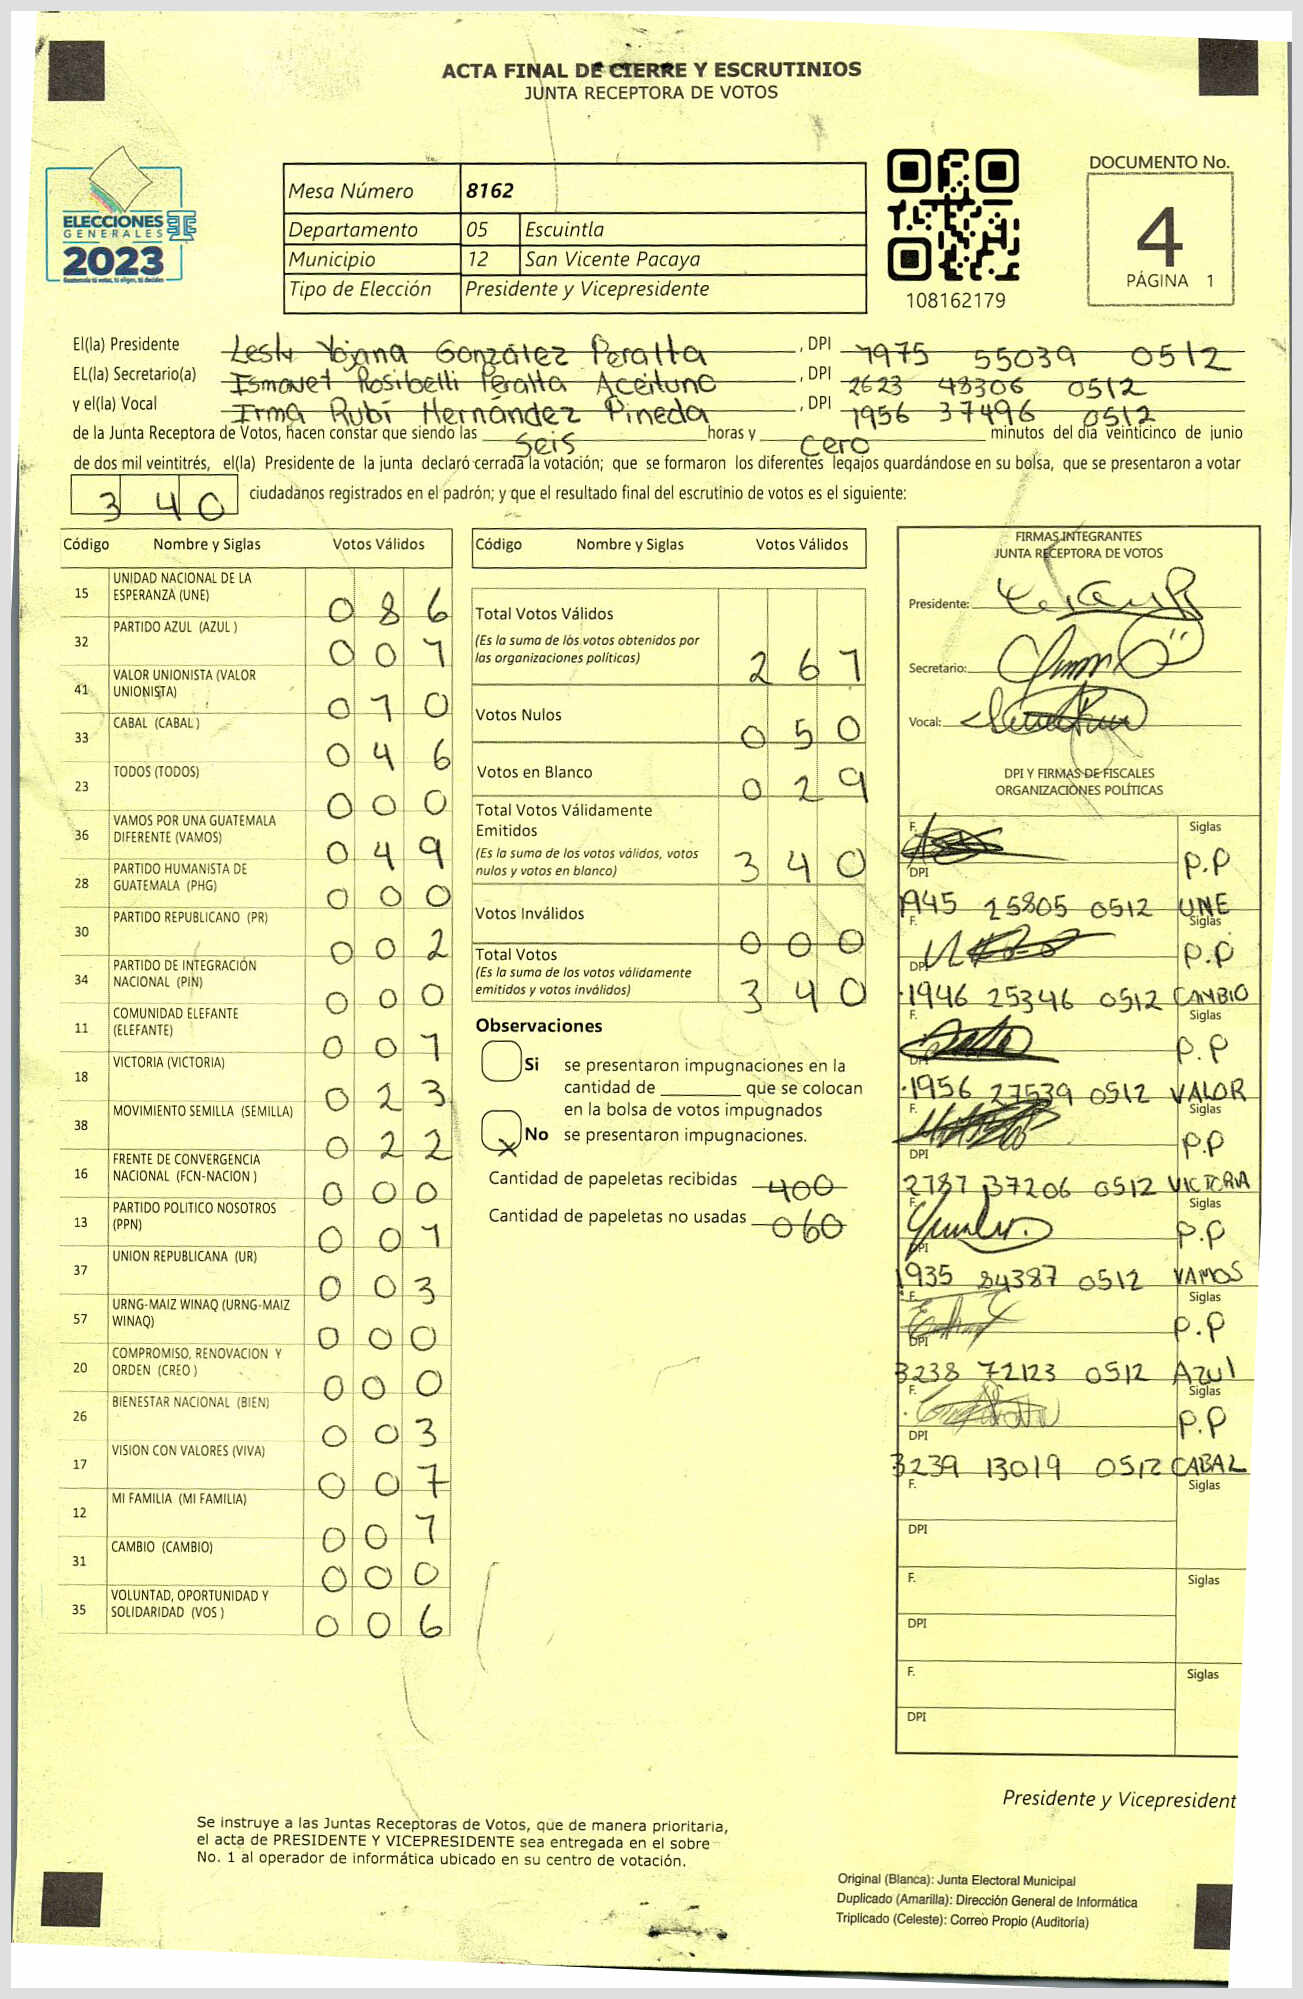 ACTA FINAL DE CIERRE Y ESCRUTINIOS
JUNTA RECEPTORA DE VOTOS
ELECCIONES
GENERALES
2023
Mesa Número 8162
Departamento 05 Escuintla
Municipio 12 San Vicente Pacaya
Tipo de Elección Presidente y Vicepresidente
108162179
DOCUMENTO No.
4
PÁGINA 1
El(la) Presidente Lesly Yojana González Peralta , DPI 1975 55039 0512
EL(la) Secretario(a) Ismavet Rosibelli Peralta Aceituno , DPI 2623 48306 0512
y el(la) Vocal Irma Rubí Hernández Pineda , DPI 1956 37496 0512
de la Junta Receptora de Votos, hacen constar que siendo las seis horas y cero minutos del día veinticinco de junio
de dos mil veintitrés, el(la) Presidente de la junta declaró cerrada la votación; que se formaron los diferentes legajos guardándose en su bolsa, que se presentaron a votar
340 ciudadanos registrados en el padrón; y que el resultado final del escrutinio de votos es el siguiente:
Código Nombre y Siglas Votos Válidos
15 UNIDAD NACIONAL DE LA ESPERANZA (UNE) 086
32 PARTIDO AZUL (AZUL ) 001
41 VALOR UNIONISTA (VALOR UNIONISTA) 010
33 CABAL (CABAL ) 046
23 TODOS (TODOS) 000
36 VAMOS POR UNA GUATEMALA DIFERENTE (VAMOS) 049
28 PARTIDO HUMANISTA DE GUATEMALA (PHG) 000
30 PARTIDO REPUBLICANO (PR) 002
34 PARTIDO DE INTEGRACIÓN NACIONAL (PIN) 000
11 COMUNIDAD ELEFANTE (ELEFANTE) 001
18 VICTORIA (VICTORIA) 023
38 MOVIMIENTO SEMILLA (SEMILLA) 022
16 FRENTE DE CONVERGENCIA NACIONAL (FCN-NACION ) 000
13 PARTIDO POLITICO NOSOTROS (PPN) 001
37 UNION REPUBLICANA (UR) 003
57 URNG-MAIZ WINAQ (URNG-MAIZ WINAQ) 000
20 COMPROMISO, RENOVACION Y ORDEN (CREO ) 000
26 BIENESTAR NACIONAL (BIEN) 003
17 VISION CON VALORES (VIVA) 007
12 MI FAMILIA (MI FAMILIA) 001
31 CAMBIO (CAMBIO) 000
35 VOLUNTAD, OPORTUNIDAD Y SOLIDARIDAD (VOS ) 006
Código Nombre y Siglas Votos Válidos
Total Votos Válidos 261
(Es la suma de los votos obtenidos por
las organizaciones políticas)
Votos Nulos 050
Votos en Blanco 029
Total Votos Válidamente
Emitidos 340
(Es la suma de los votos válidos, votos
nulos y votos en blanco)
Votos Inválidos 000
Total Votos 340
(Es la suma de los votos válidamente
emitidos y votos inválidos)
Observaciones
Si se presentaron impugnaciones en la
cantidad de ________ que se colocan
en la bolsa de votos impugnados
x No se presentaron impugnaciones.
Cantidad de papeletas recibidas 400
Cantidad de papeletas no usadas 060
FIRMAS INTEGRANTES
JUNTA RECEPTORA DE VOTOS
Presidente:
Secretario:
Vocal:
DPI Y FIRMAS DE FISCALES
ORGANIZACIONES POLÍTICAS
F. Siglas P.P
DPI 1945 25805 0512 UNE
F. Siglas P.P
DPI 1946 25346 0512 CAMBIO
F. Siglas P.P
DPI 1956 27539 0512 VALOR
F. Siglas P.P
DPI 2787 37206 0512 VICTORIA
F. Siglas P.P
DPI 1935 84387 0512 VAMOS
F. Siglas P.P
DPI 3238 72123 0512 AZUl
F. Siglas P.P
DPI 3239 13019 0512 CABAL
F. Siglas
DPI
F. Siglas
DPI
F. Siglas
DPI
Presidente y Vicepresident
Se instruye a las Juntas Receptoras de Votos, que de manera prioritaria,
el acta de PRESIDENTE Y VICEPRESIDENTE sea entregada en el sobre
No. 1 al operador de informática ubicado en su centro de votación.
Original (Blanca): Junta Electoral Municipal
Duplicado (Amarilla): Dirección General de Informática
Triplicado (Celeste): Correo Propio (Auditoría)